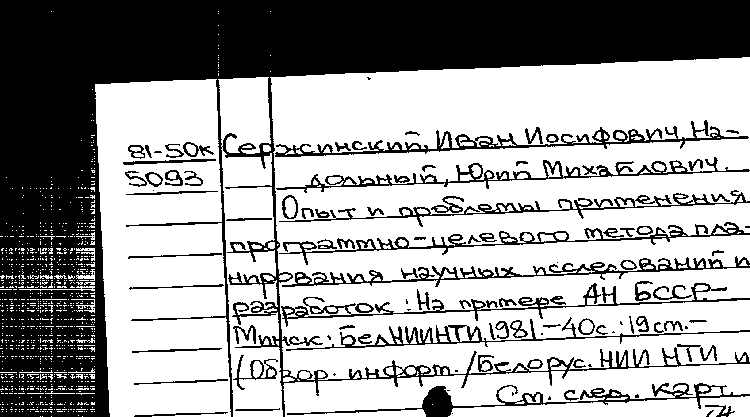 81-50к Сержсинский, Иван Иосифович, На-
5093 дольный, Юрий Михайлович.
Опыт и проблемы применения
программно-целевого метода пла-
нирования научных исследований и
разработок: На примере АН БССР.-
Минск: БелНИИНТИ, 1981.-40с.; 19см.-
(Обзор. информ. / Белорус. НИИ НТИ и
См. след. карт.
74